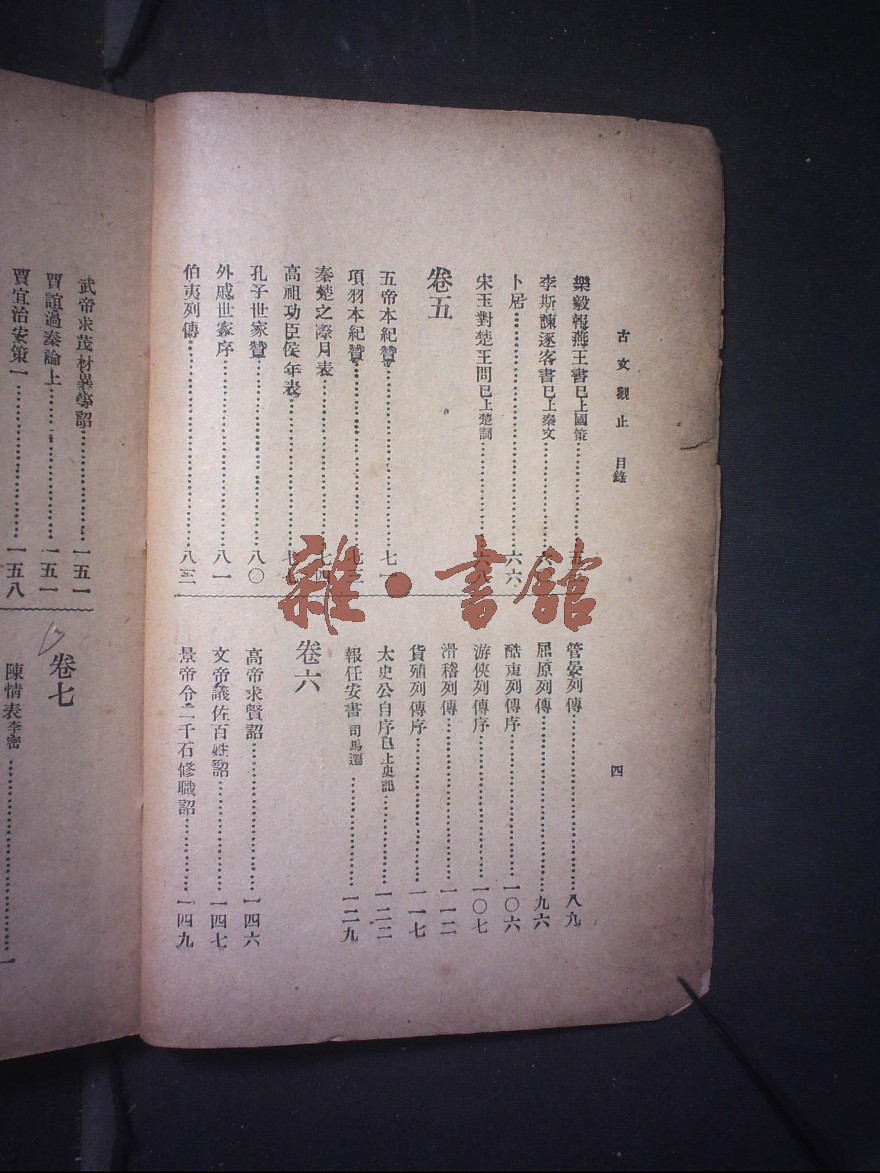 古文觀止 目錄 四
樂毅報燕王書已上國策
李斯諫逐客書已上秦文
卜居 六六
宋玉對楚王問已上楚詞 六八
卷五
五帝本紀贊 七一
項羽本紀贊
秦楚之際月表 七四
高祖功臣侯年表
孔子世家贊 八〇
外戚世家序 八一
伯夷列傳 八三
管晏列傳 八九
屈原列傳 九六
酷吏列傳序 一〇六
游俠列傳序 一〇七
滑稽列傳 一一二
貨殖列傳序 一一七
太史公自序已上史記 一二二
報任安書 司馬遷 一二九
卷六
高帝求賢詔 一四六
文帝議佐百姓詔 一四七
景帝令二千石修職詔 一四九
武帝求茂材異等詔 一五一
賈誼過秦論上 一五一
賈宜治安策一 一五八
卷七
陳情表李密
雜·書館